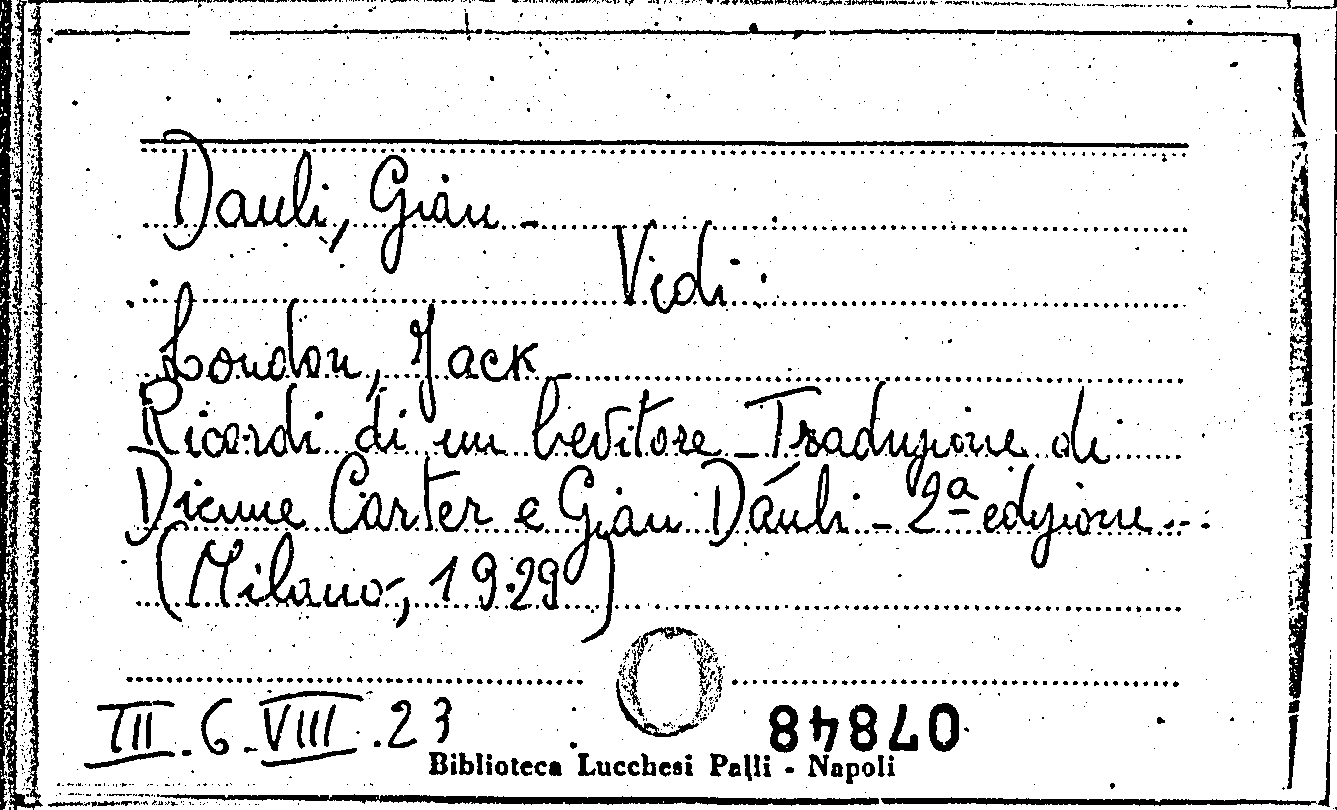 Dauli, Gian -
Vedi :
London, Jack -
Ricordi di un bevitore - Traduzione di
Dienne Carter e Gian Dàuli - 2ª edizione -
(Milano, 1929)
III . 6 . VIII . 23
07848
Biblioteca Lucchesi Palli - Napoli